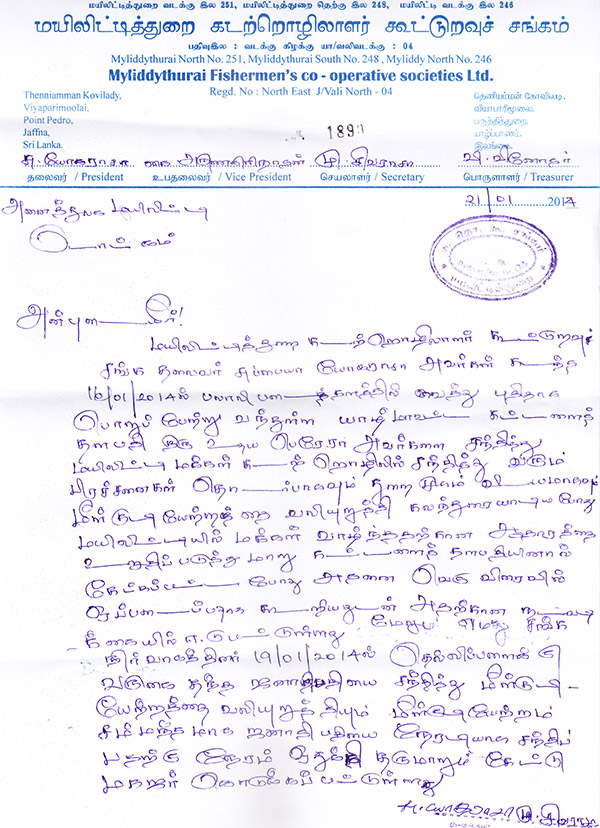 மயிலிட்டித்துறை வடக்கு இல 251, மயிலிட்டித்துறை தெற்கு இல 248, மயிலிட்டி வடக்கு இல 246
மயிலிட்டித்துறை கடற்றொழிலாளர் கூட்டுறவுச் சங்கம்
பதிவுஇல : வடக்கு கிழக்கு யா/வலிவடக்கு : 04
Myliddythurai North No. 251, Myliddythurai South No. 248 , Myliddy North No. 246
Myliddythurai Fishermen's co - operative societies Ltd.
Regd. No : North East J/Vali North - 04
Thenniamman Kovilady,
Viyaparimoolai,
Point Pedro,
Jaffna,
Sri Lanka.
தெணியம்மன் கோவிலடி,
வியாபாரிமூலை,
பருத்தித்துறை,
யாழ்ப்பாணம்,
இலங்கை.
1899
சு. யோகராசா கை. அருணகிரிநாதன் மு. சிவராசா வி. வினோதன்
தலைவர் / President உபதலைவர் / Vice President செயலாளர் / Secretary பொருளாளர் / Treasurer
21/01 2014
அனைத்துலக மயிலிட்டி
ஒன்றியம்
மயிலிட்டித்துறை
அன்புடையீர்!
மயிலிட்டித்துறை கடற்றொழிலாளர் கூட்டுறவுச்
சங்க தலைவர் சுப்பையா யோகராசா அவர்கள் கடந்த
16/01/2014ல் பலாலி படைத்தளத்தில் வைத்து புதிதாக
பொறுப்பேற்று வந்துள்ள யாழ் மாவட்ட கட்டளைத்
தளபதி திரு உதய பெரேரா அவர்களை சந்தித்து
மயிலிட்டி மக்கள் கடற்றொழிலில் சந்தித்து வரும்
பிரச்சினைகள் தொடர்பாகவும் துறைமுகம் விடயமாகவும்
மீள்குடியேற்றத்தை வலியுறுத்தி கலந்துரையாடியபோது
மயிலிட்டியில் மக்கள் வாழ்ந்ததற்கான ஆதாரத்தை
உறுதிப்படுத்துமாறு கட்டளைத் தளபதியினால்
கேட்கப்பட்டபோது அதனை வெகு விரைவில்
ஒப்படைப்பதாக கூறியதுடன் அதற்கான நடவடி
க்கையில் ஈடுபட்டுள்ளது. மேலும் எமது சங்க
நிர்வாகத்தினர் 19/01/2014ல் தெல்லிப்பளைக்கு
வருகை தந்த ஜனாதிபதியை சந்தித்து மீள்குடி
யேற்றத்தை வலியுறுத்தியும் மீள்குடியேற்றம்
சம்மந்தமாக ஜனாதிபதியை நேரடியாக சந்திப்
பதற்கு நேரம் ஒதுக்கி தருமாறும் கேட்டு
மகஜர் கொடுக்கப்பட்டுள்ளது
சு. யோகராசா மு. சிவராசா